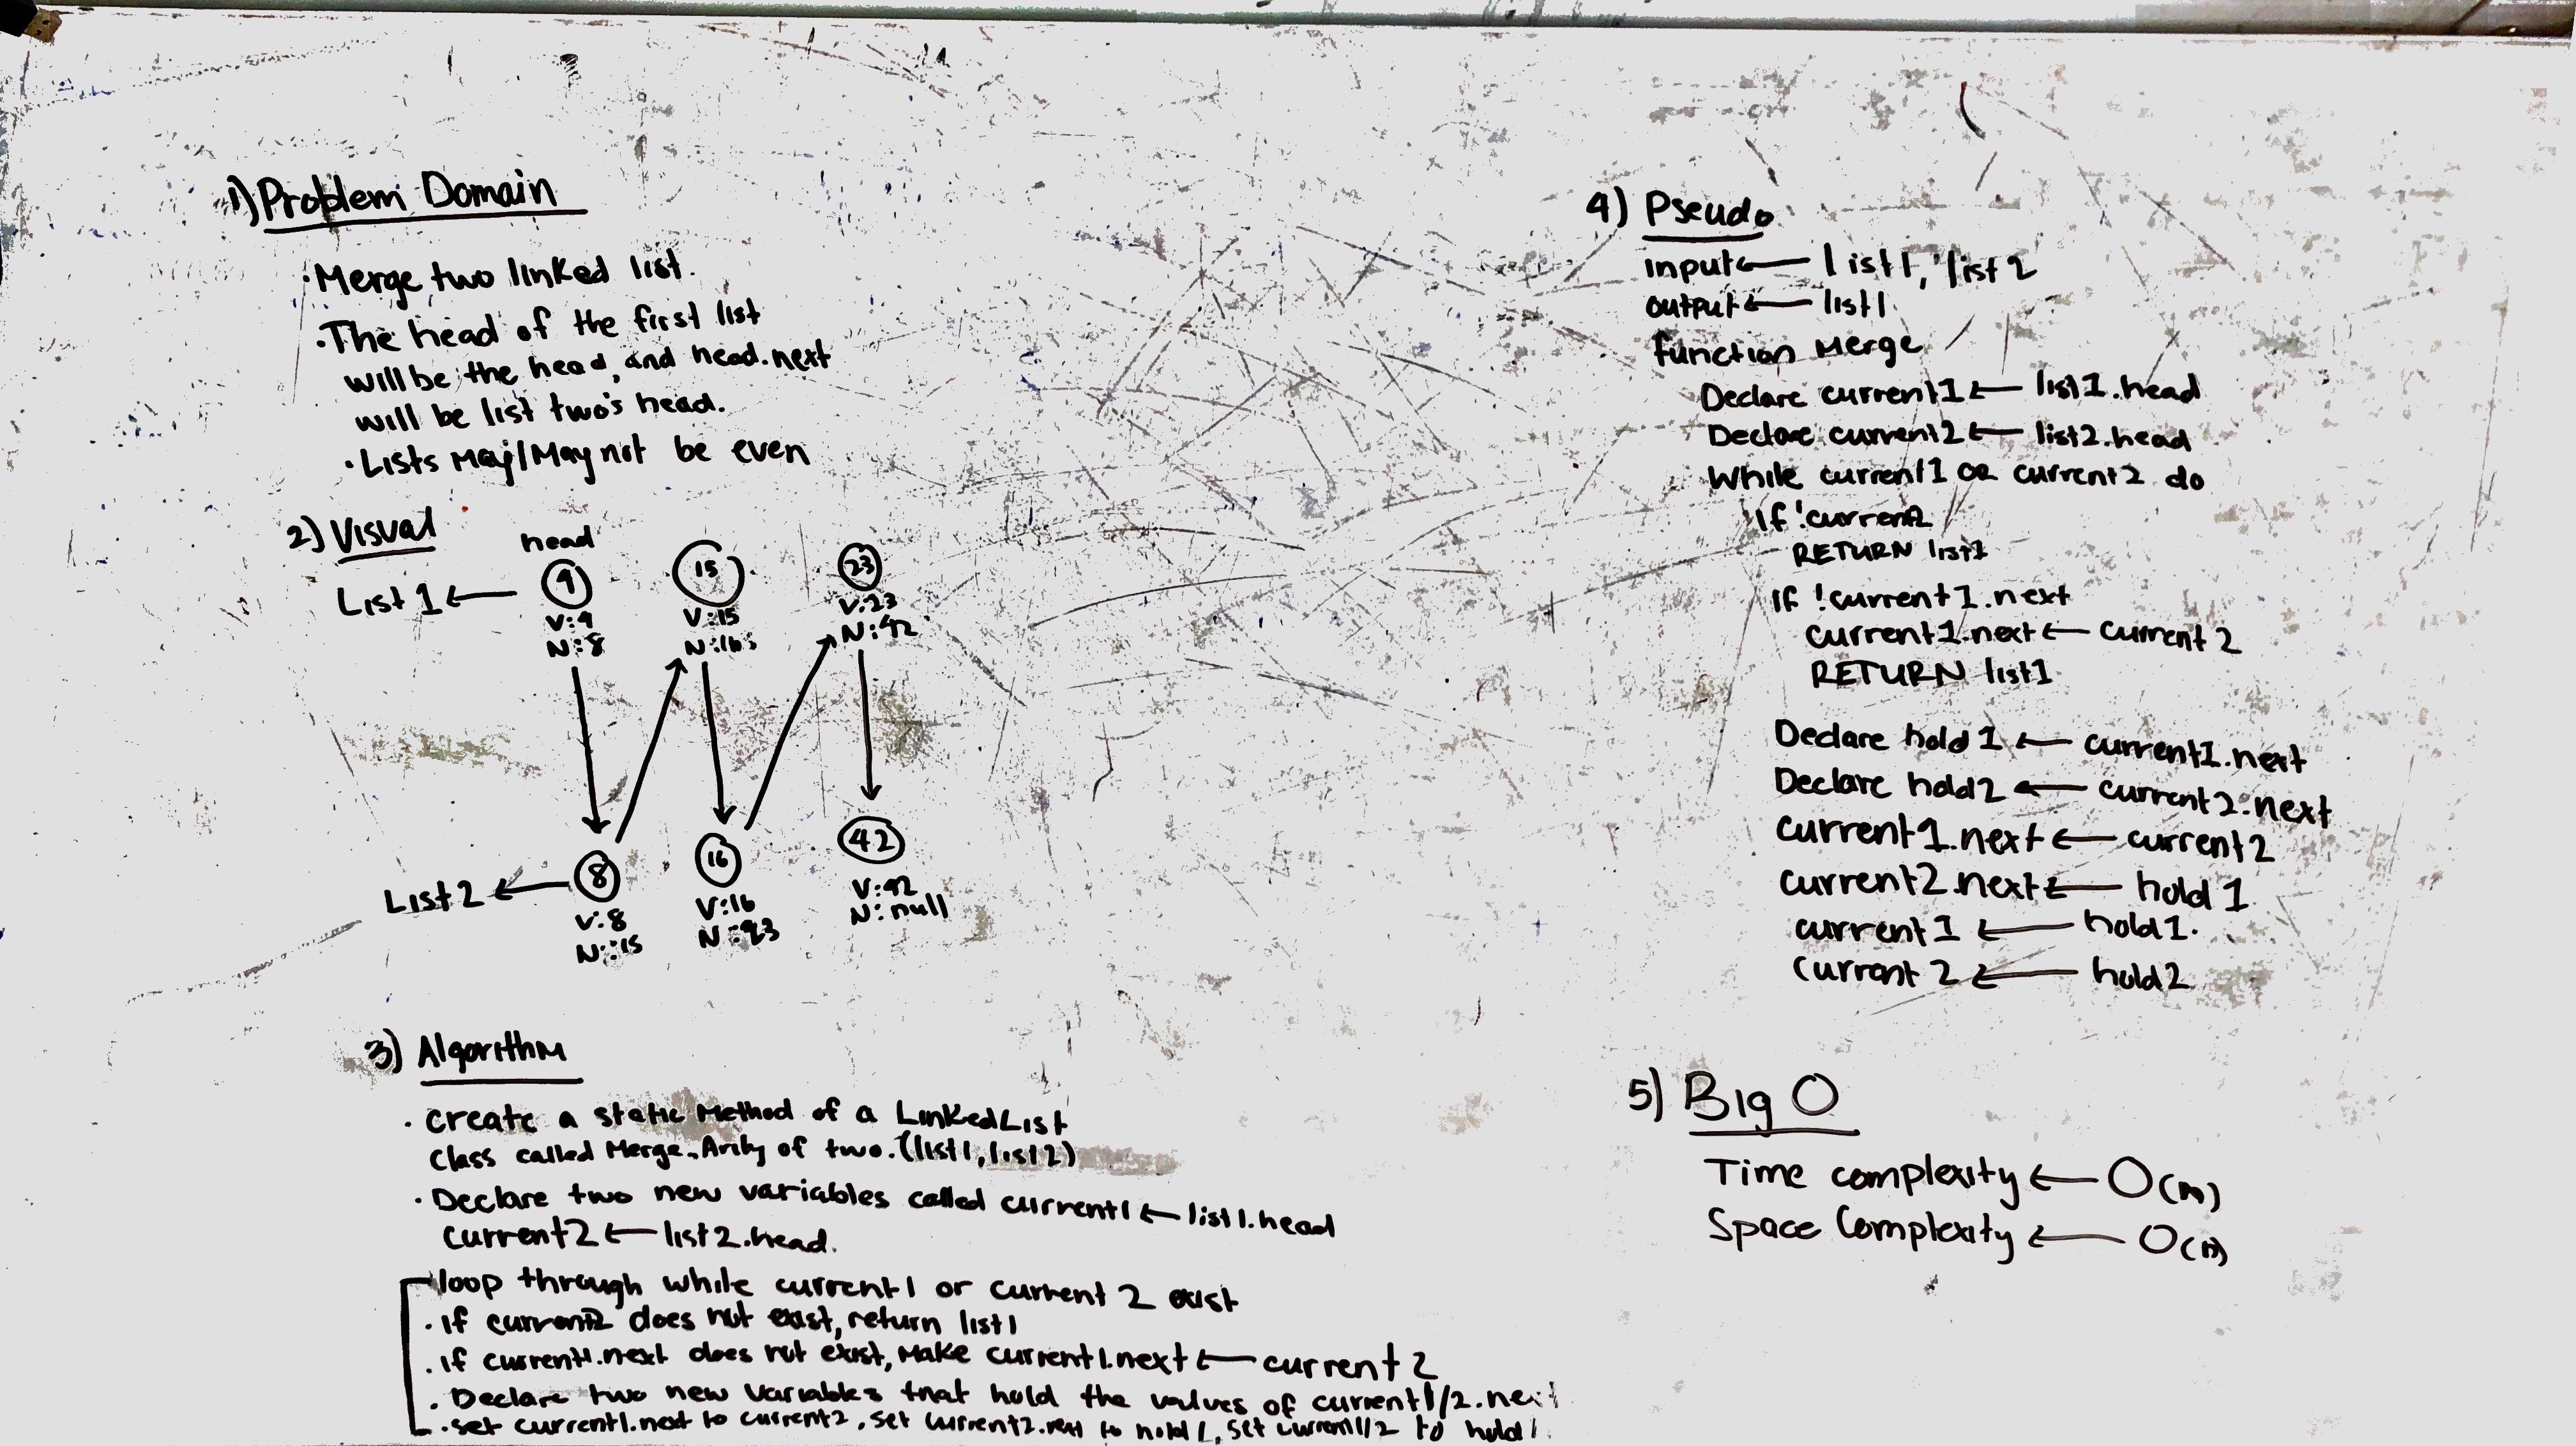 1) Problem Domain
· Merge two linked list.
· The head of the first list
will be the head, and head.next
will be list two's head.
· Lists may/May not be even
2) Visual
head
List 1 ← 4 15 23
V:4 V:15 V:23
N:8 N:16 N:42
List 2 ← 8 16 42
V:8 V:16 V:42
N:15 N:23 N:null
3) Algorithm
· Create a static Method of a LinkedList
Class called Merge. Arity of two. (list1, list2)
· Declare two new variables called current1 ← list1.head
current2 ← list2.head.
loop through while current1 or current2 exist
· If current2 does not exist, return list1
· If current1.next does not exist, make current1.next ← current2
· Declare two new variables that hold the values of current1/2.next
· set current1.next to current2, set current2.next to hold1, set current1/2 to hold/
4) Pseudo
input ← list1, list2
output ← list1
function Merge
Declare current1 ← list1.head
Declare current2 ← list2.head
While current1 OR current2 do
If !current2
RETURN list1
If !current1.next
current1.next ← current2
RETURN list1
Declare hold1 ← current1.next
Declare hold2 ← current2.next
current1.next ← current2
current2.next ← hold1
current1 ← hold1.
current2 ← hold2
5) Big O
Time complexity ← O(n)
Space Complexity ← O(n)